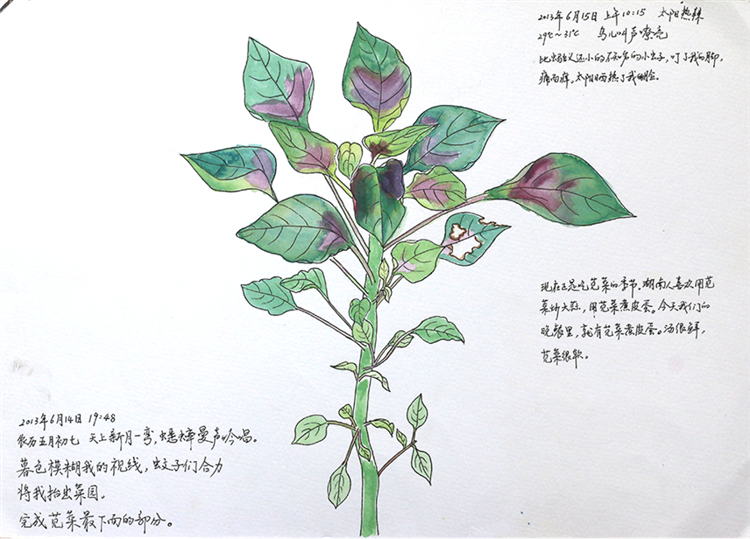 2013年6月15日 上午10:15 太阳热辣
29℃~31℃ 鸟儿叫声嘹亮
比蚂蚁还小的不知名的小虫子,叮了我的脚,
痛而痒,太阳晒热了我的脸。
现在正是吃苋菜的季节,湖南人喜欢用苋
菜炒大蒜,用苋菜煮皮蛋。今天我们的
晚餐里,就有苋菜煮皮蛋。汤很鲜,
苋菜很软。
2013年6月14日 19:48
农历五月初七 天上新月一弯,蟋蟀曼声吟唱。
暮色模糊我的视线,蚊子们合力
将我抬出菜园。
完成苋菜最下面的部分。